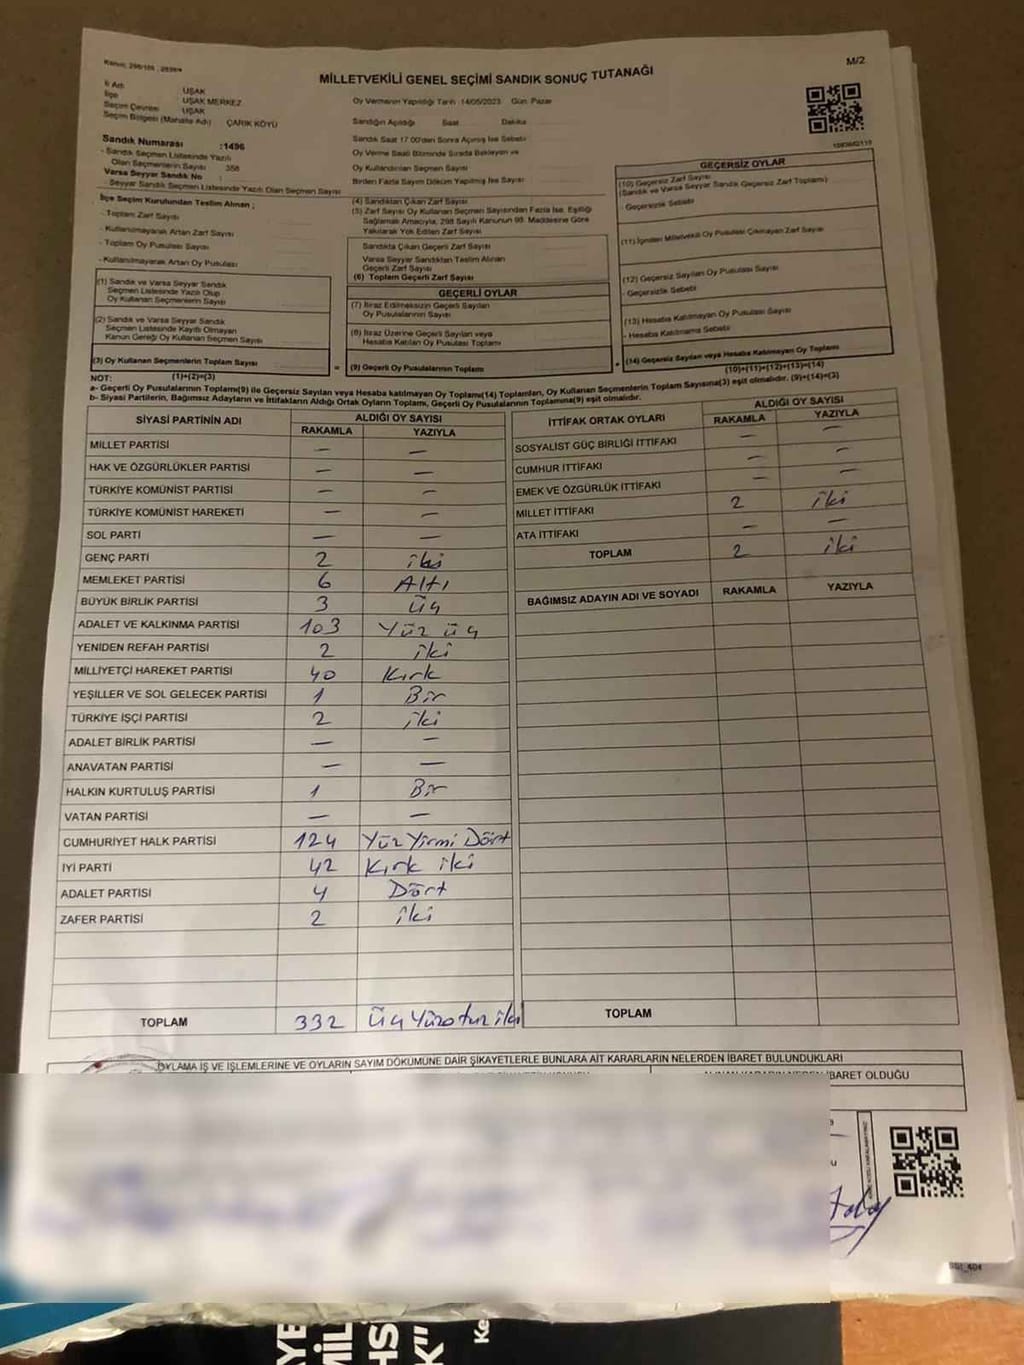 Kanun: 298/105 , 2839/4
M/2
MİLLETVEKİLİ GENEL SEÇİMİ SANDIK SONUÇ TUTANAĞI
İl Adı UŞAK
İlçe UŞAK MERKEZ
Seçim Çevresi UŞAK
Seçim Bölgesi (Mahalle Adı) ÇARIK KÖYÜ
Sandık Numarası :1496
- Sandık Seçmen Listesinde Yazılı
Olan Seçmenlerin Sayısı 358
Varsa Seyyar Sandık No :
- Seyyar Sandık Seçmen Listesinde Yazılı Olan Seçmen Sayısı
İlçe Seçim Kurulundan Teslim Alınan ;
- Toplam Zarf Sayısı
- Kullanılmayarak Artan Zarf Sayısı
- Toplam Oy Pusulası Sayısı
- Kullanılmayarak Artan Oy Pusulası
(1) Sandık ve Varsa Seyyar Sandık
Seçmen Listesinde Yazılı Olup
Oy Kullanan Seçmenlerin Sayısı
(2) Sandık ve Varsa Seyyar Sandık
Seçmen Listesinde Kayıtlı Olmayan
Kanun Gereği Oy Kullanan Seçmen Sayısı
(3) Oy Kullanan Seçmenlerin Toplam Sayısı
(1)+(2)=(3)
Oy Vermenin Yapıldığı Tarih :14/05/2023 Gün: Pazar
Sandığın Açıldığı Saat Dakika
Sandık Saat 17.00'den Sonra Açılmış İse Sebebi
Oy Verme Saati Bitiminde Sırada Bekleyen ve
Oy Kullandırılan Seçmen Sayısı
Birden Fazla Sayım Döküm Yapılmış İse Sayısı
(4) Sandıktan Çıkan Zarf Sayısı
(5) Zarf Sayısı Oy Kullanan Seçmen Sayısından Fazla İse, Eşitliği
Sağlamak Amacıyla, 298 Sayılı Kanunun 98. Maddesine Göre
Yakılarak Yok Edilen Zarf Sayısı
Sandıkta Çıkan Geçerli Zarf Sayısı
Varsa Seyyar Sandıktan Teslim Alınan
Geçerli Zarf Sayısı
(6) Toplam Geçerli Zarf Sayısı
GEÇERLİ OYLAR
(7) İtiraz Edilmeksizin Geçerli Sayılan
Oy Pusulalarının Sayısı
(8) İtiraz Üzerine Geçerli Sayılan veya
Hesaba Katılan Oy Pusulası Toplamı
= (9) Geçerli Oy Pusulalarının Toplamı
GEÇERSİZ OYLAR
(10) Geçersiz Zarf Sayısı
(Sandık ve Varsa Seyyar Sandık Geçersiz Zarf Toplamı)
- Geçersizlik Sebebi
(11) İçinden Milletvekili Oy Pusulası Çıkmayan Zarf Sayısı
(12) Geçersiz Sayılan Oy Pusulası Sayısı
- Geçersizlik Sebebi
(13) Hesaba Katılmayan Oy Pusulası Sayısı
- Hesaba Katılmama Sebebi
+ (14) Geçersiz Sayılan veya Hesaba Katılmayan Oy Toplamı
(10)+(11)+(12)+(13)=(14)
NOT:
a- Geçerli Oy Pusulalarının Toplamı(9) ile Geçersiz Sayılan veya Hesaba katılmayan Oy Toplamı(14) Toplamları, Oy Kullanan Seçmenlerin Toplam Sayısına(3) eşit olmalıdır. (9)+(14)=(3)
b- Siyasi Partilerin, Bağımsız Adayların ve İttifakların Aldığı Ortak Oyların Toplamı, Geçerli Oy Pusulalarının Toplamına(9) eşit olmalıdır.
SİYASİ PARTİNİN ADI ALDIĞI OY SAYISI
RAKAMLA YAZIYLA
MİLLET PARTİSİ — —
HAK VE ÖZGÜRLÜKLER PARTİSİ — —
TÜRKİYE KOMÜNİST PARTİSİ — —
TÜRKİYE KOMÜNİST HAREKETİ — —
SOL PARTİ — —
GENÇ PARTİ 2 iki
MEMLEKET PARTİSİ 6 Altı
BÜYÜK BİRLİK PARTİSİ 3 üç
ADALET VE KALKINMA PARTİSİ 103 Yüz üç
YENİDEN REFAH PARTİSİ 2 iki
MİLLİYETÇİ HAREKET PARTİSİ 40 Kırk
YEŞİLLER VE SOL GELECEK PARTİSİ 1 Bir
TÜRKİYE İŞÇİ PARTİSİ 2 iki
ADALET BİRLİK PARTİSİ — —
ANAVATAN PARTİSİ — —
HALKIN KURTULUŞ PARTİSİ 1 Bir
VATAN PARTİSİ — —
CUMHURİYET HALK PARTİSİ 124 Yüz Yirmi Dört
İYİ PARTİ 42 Kırk iki
ADALET PARTİSİ 4 Dört
ZAFER PARTİSİ 2 iki
TOPLAM 332 Üç Yüz otuz iki
İTTİFAK ORTAK OYLARI ALDIĞI OY SAYISI
RAKAMLA YAZIYLA
SOSYALİST GÜÇ BİRLİĞİ İTTİFAKI — —
CUMHUR İTTİFAKI — —
EMEK VE ÖZGÜRLÜK İTTİFAKI — —
MİLLET İTTİFAKI 2 iki
ATA İTTİFAKI — —
TOPLAM 2 iki
BAĞIMSIZ ADAYIN ADI VE SOYADI RAKAMLA YAZIYLA
TOPLAM
OYLAMA İŞ VE İŞLEMLERİNE VE OYLARIN SAYIM DÖKÜMÜNE DAİR ŞİKAYETLERLE BUNLARA AİT KARARLARIN NELERDEN İBARET BULUNDUKLARI
İBARET OLDUĞU